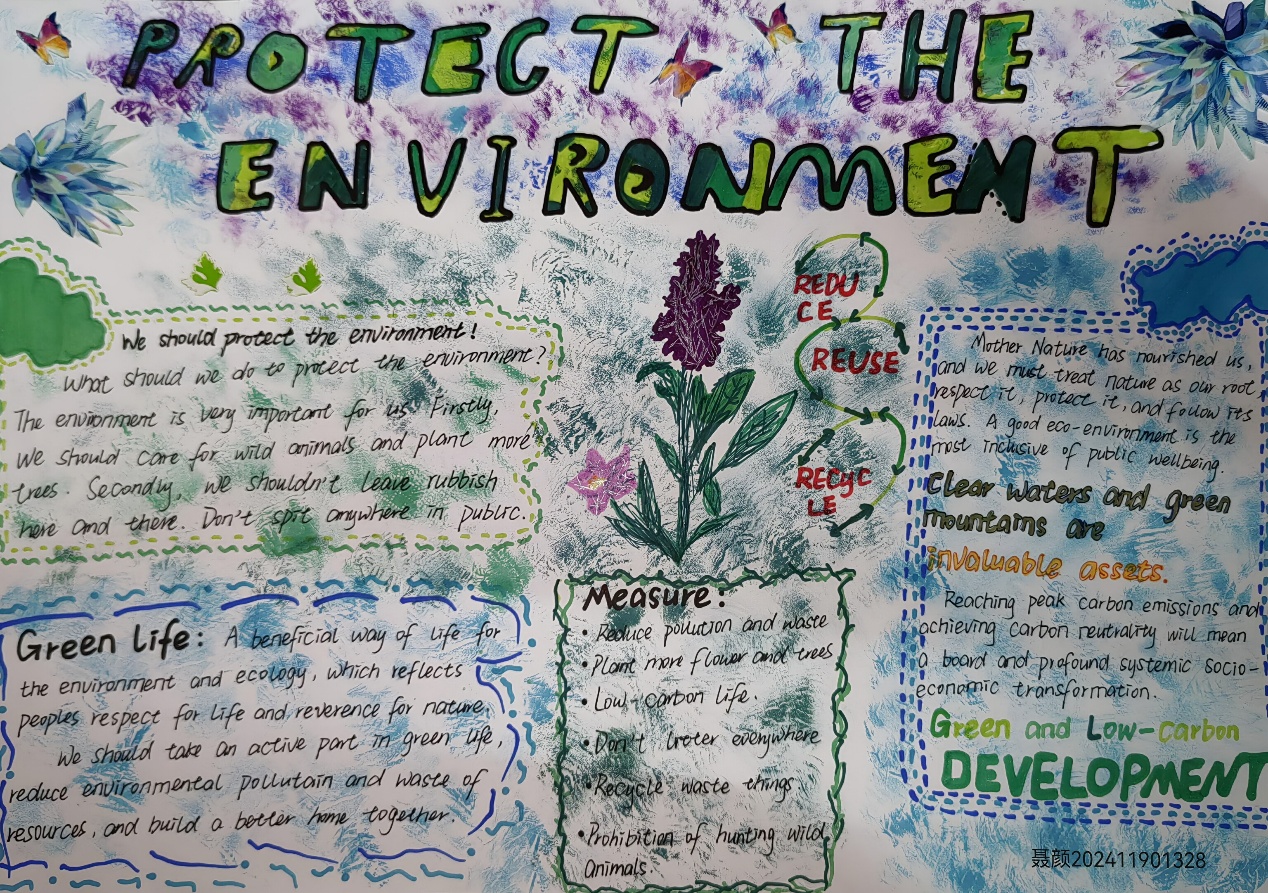 PROTECT THE
ENVIRONMENT
We should protect the environment!
What should we do to protect the environment?
The environment is very important for us. Firstly,
we should care for wild animals and plant more
trees. Secondly, we shouldn't leave rubbish
here and there. Don't spit anywhere in public.
Green Life: A beneficial way of life for
the environment and ecology, which reflects
peoples respect for life and reverence for nature.
We should take an active part in green life,
reduce environmental pollutain and waste of
resources, and build a better home together.
REDU
CE
REUSE
RECYC
LE
Measure:
• Reduce pollution and waste
• Plant more flower and trees
• Low-carbon life.
• Don't everywhere
• Recycle waste things
• Prohibition of hunting wild
animals.
Mother Nature has nourished us,
and we must treat nature as our root
respect it, protect it, and follow its
laws. A good eco-environment is the
most inclusive of public wellbeing.
Clear waters and green
mountains are
invaluable assets.
Reaching peak carbon emissions and
achieving carbon neutrality will mean
a board and profound systemic socio-
economic transformation.
Green and Low-carbon
DEVELOPMENT
聂颜202411901328